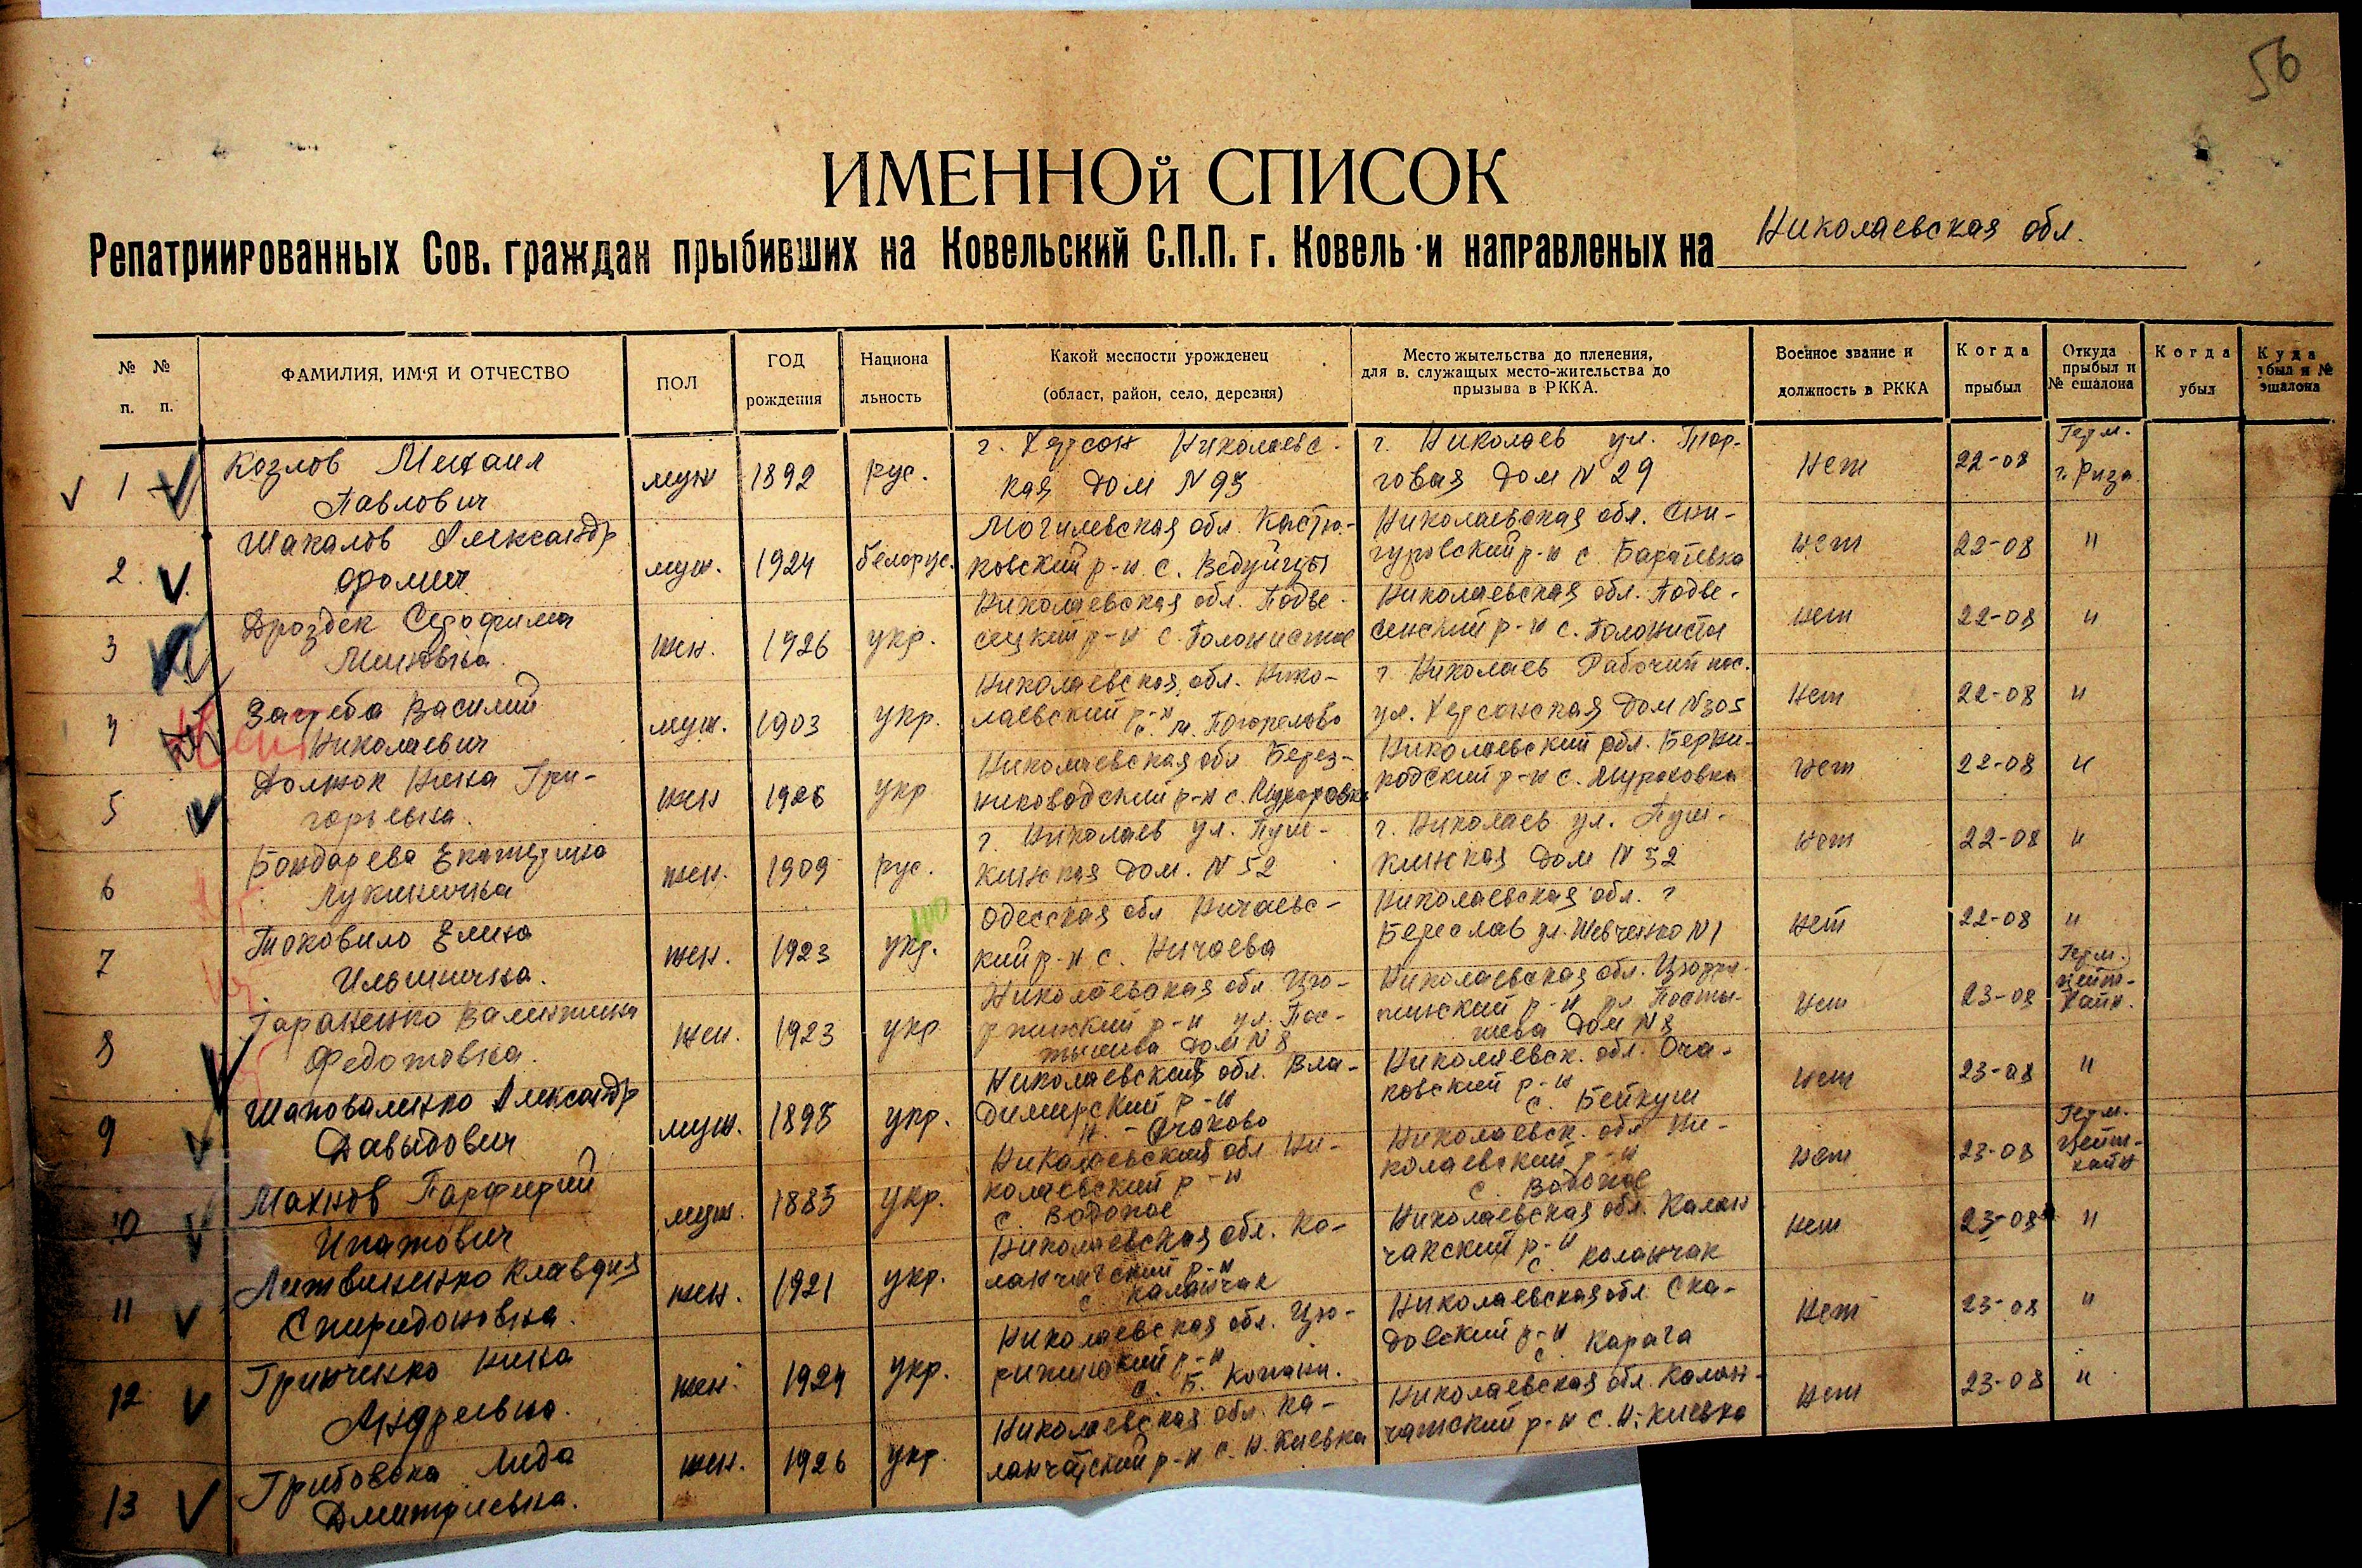 56
ИМЕННОй СПИСОК
Репатриированных Сов. граждан прыбивших на Ковельский С.П.П. г. Ковель и направленых на Николаевская обл.
№ № п. п.
ФАМИЛИЯ, ИМ'Я И ОТЧЕСТВО
ПОЛ
ГОД рождения
Национа льность
Какой меспости урожденец (област, район, село, деревня)
Место жытельства до пленения, для в. служащих место-жительства до прызыва в РККА.
Военное звание и должность в РККА
Когда прыбыл
Откуда прыбыл и № ешалона
Когда убыл
Куда убыл и № эшалона
1 Козлов Михаил Павлович муж 1892 рус. г. Херсон Николаевс- кая дом N 93 г. Николаев ул. Тор- говая дом N 29 Нет 22-08 Герм. г. Риза
2. Шакалов Александр Фомич муж. 1924 белорус. Могилевская обл. Костю- ковский р-н с. Ведуйцы Николаевская обл. Сни- гуровский р-н с. Баратевка нет 22-08 "
3 Дроздек Серафима Миновна жен. 1926 укр. Николаевская обл. Подве- сецкий р-н с. Полонистое Николаевская обл. Подве- сенский р-н с. Полонисты нет 22-08 "
4 Загреба Василий Николаевич муж. 1903 укр. Николаевская обл. Нико- лаевский р-н с. м. Погорелово г. Николаев Рабочий пос. ул. Херсонская дом N 305 Нет 22-08 "
5 Должок Нина Гри- горьевна. жен 1926 укр Николаевская обл Берез- ниководский р-н с. Николаевский обл. р-н с. Мураховка Нет 22-08 "
6 Бондарева Екатерина Лукинична жен. 1909 рус. г. Николаев ул. Пуш- кинская дом. N 52 г. Николаев ул. Пуш- кинская дом N 52 нет 22-08 "
7 Токовило Елена Ильинична. жен. 1923 укр. Одесская обл Ничаевс- кий р-н с. Ничаева Николаевская обл. г Береслав ул. Шевченко N 1 нет 22-08 "
8 Гараненко Валентина Федотовна. жен. 1923 укр Николаевская обл. Цю- рпинский р-н ул. Пос- тышева дом N 8 Николаевская обл. р-н ул Посты- шева дом N 8 Нет 23-08 Герм.
9 Шаповаленко Александр Давыдович муж. 1898 укр. Николаевский обл. Вла- димирский р-н Н. - Очаково Николаевск. обл. Оча- ковский р-н с. Бейкуш нет 23-08 "
10 Махнов Парфирий Ипатович муж. 1885 укр. Николаевский обл Ни- колаевский р-н с. Водопое Николаевск. обл Ни- колаевский р-н с. Водопое нет 23-08 Герм.
11 Литвиненко Клавдия Спиридоновна. жен. 1921 укр. Николаевская обл. Ка- ланчагский р-н с. Каланчак Николаевская обл. Калан чакский р-н с. Каланчак нет 23-08 "
12 Гринченко Нина Андреевна. жен. 1924 укр. Николаевская обл. Цю- рипинский р-н с. Б. Копани. Николаевская обл. Ска- довский р-н с. Карага Нет 23-08 "
13 Грибовска Лида Дмитриевна. жен. 1926 укр. Николаевская обл. Ка- ланчатский р-н с. Н. Киевка Николаевская обл. Калан- чатский р-н с. Н. Киевка Нет 23-08 "